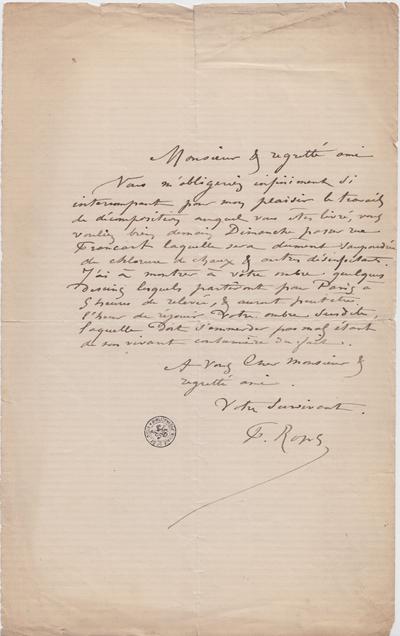 Monsieur & regretté ami
Vous m'obligeriez infiniment si
interrompant pour mon plaisir le travail
de décomposition auquel vous êtes livré, vous
vouliez bien demain Dimanche passer rue
laquelle sera dument saupoudrée
de chlorure de chaux & autres désinfectants.
J'ai à montrer à votre ombre quelques
dessins lesquels partiront par Paris à
5 heures de relevée, & auront peut-être
l'heur de réjouir votre ombre susdite,
laquelle Doit s'emmerder pas mal étant
de son vivant coutumière du fait.
A vous Cher Monsieur &
regretté ami.
Votre Survivant.
F. Rops